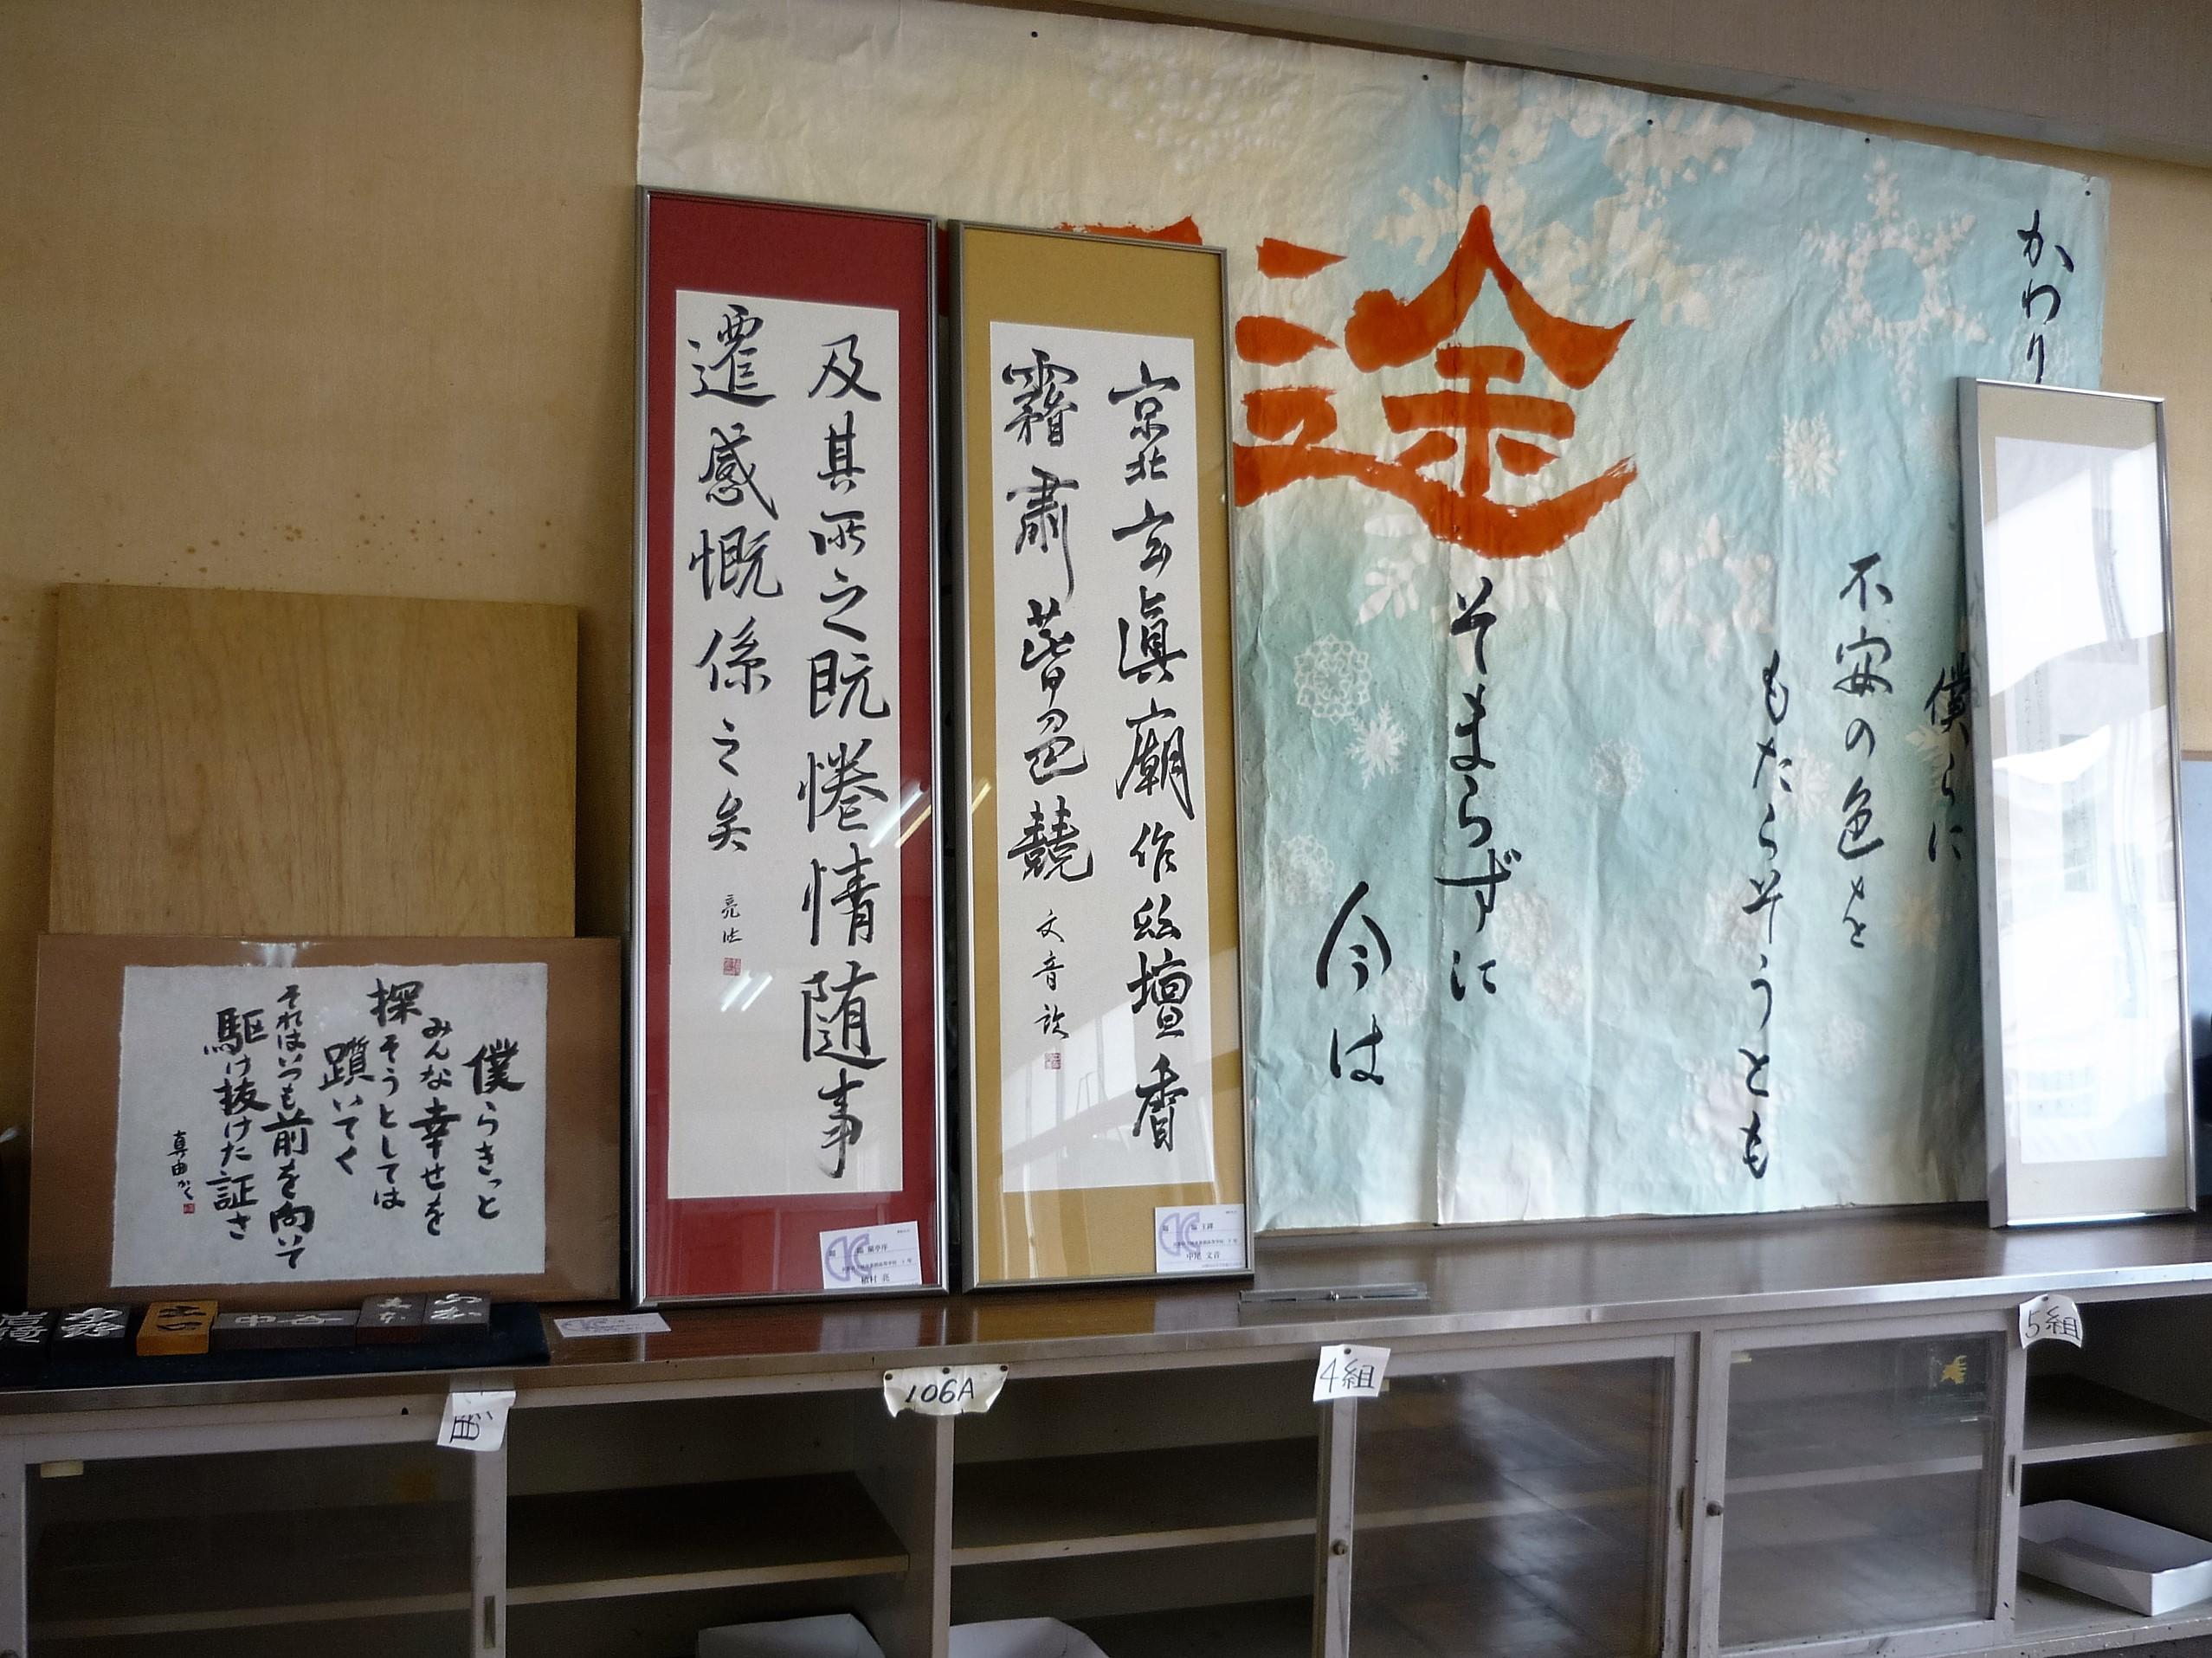 かわり
僕らに
不安の色を
もたらそうとも
そまらずに
今は
途
京北玄眞廟作絃壇香
霜肅昔邑競
文音
及其所之既惓情随事
遷感慨係之矣
亮
僕らきっと
みんな幸せを
探そうとしては
躓いてく
それはいつも前を向いて
駆け抜けた証さ
真由かく
蘭亭序
植村 亮
中尾 文音
中谷
106A
4組
5組